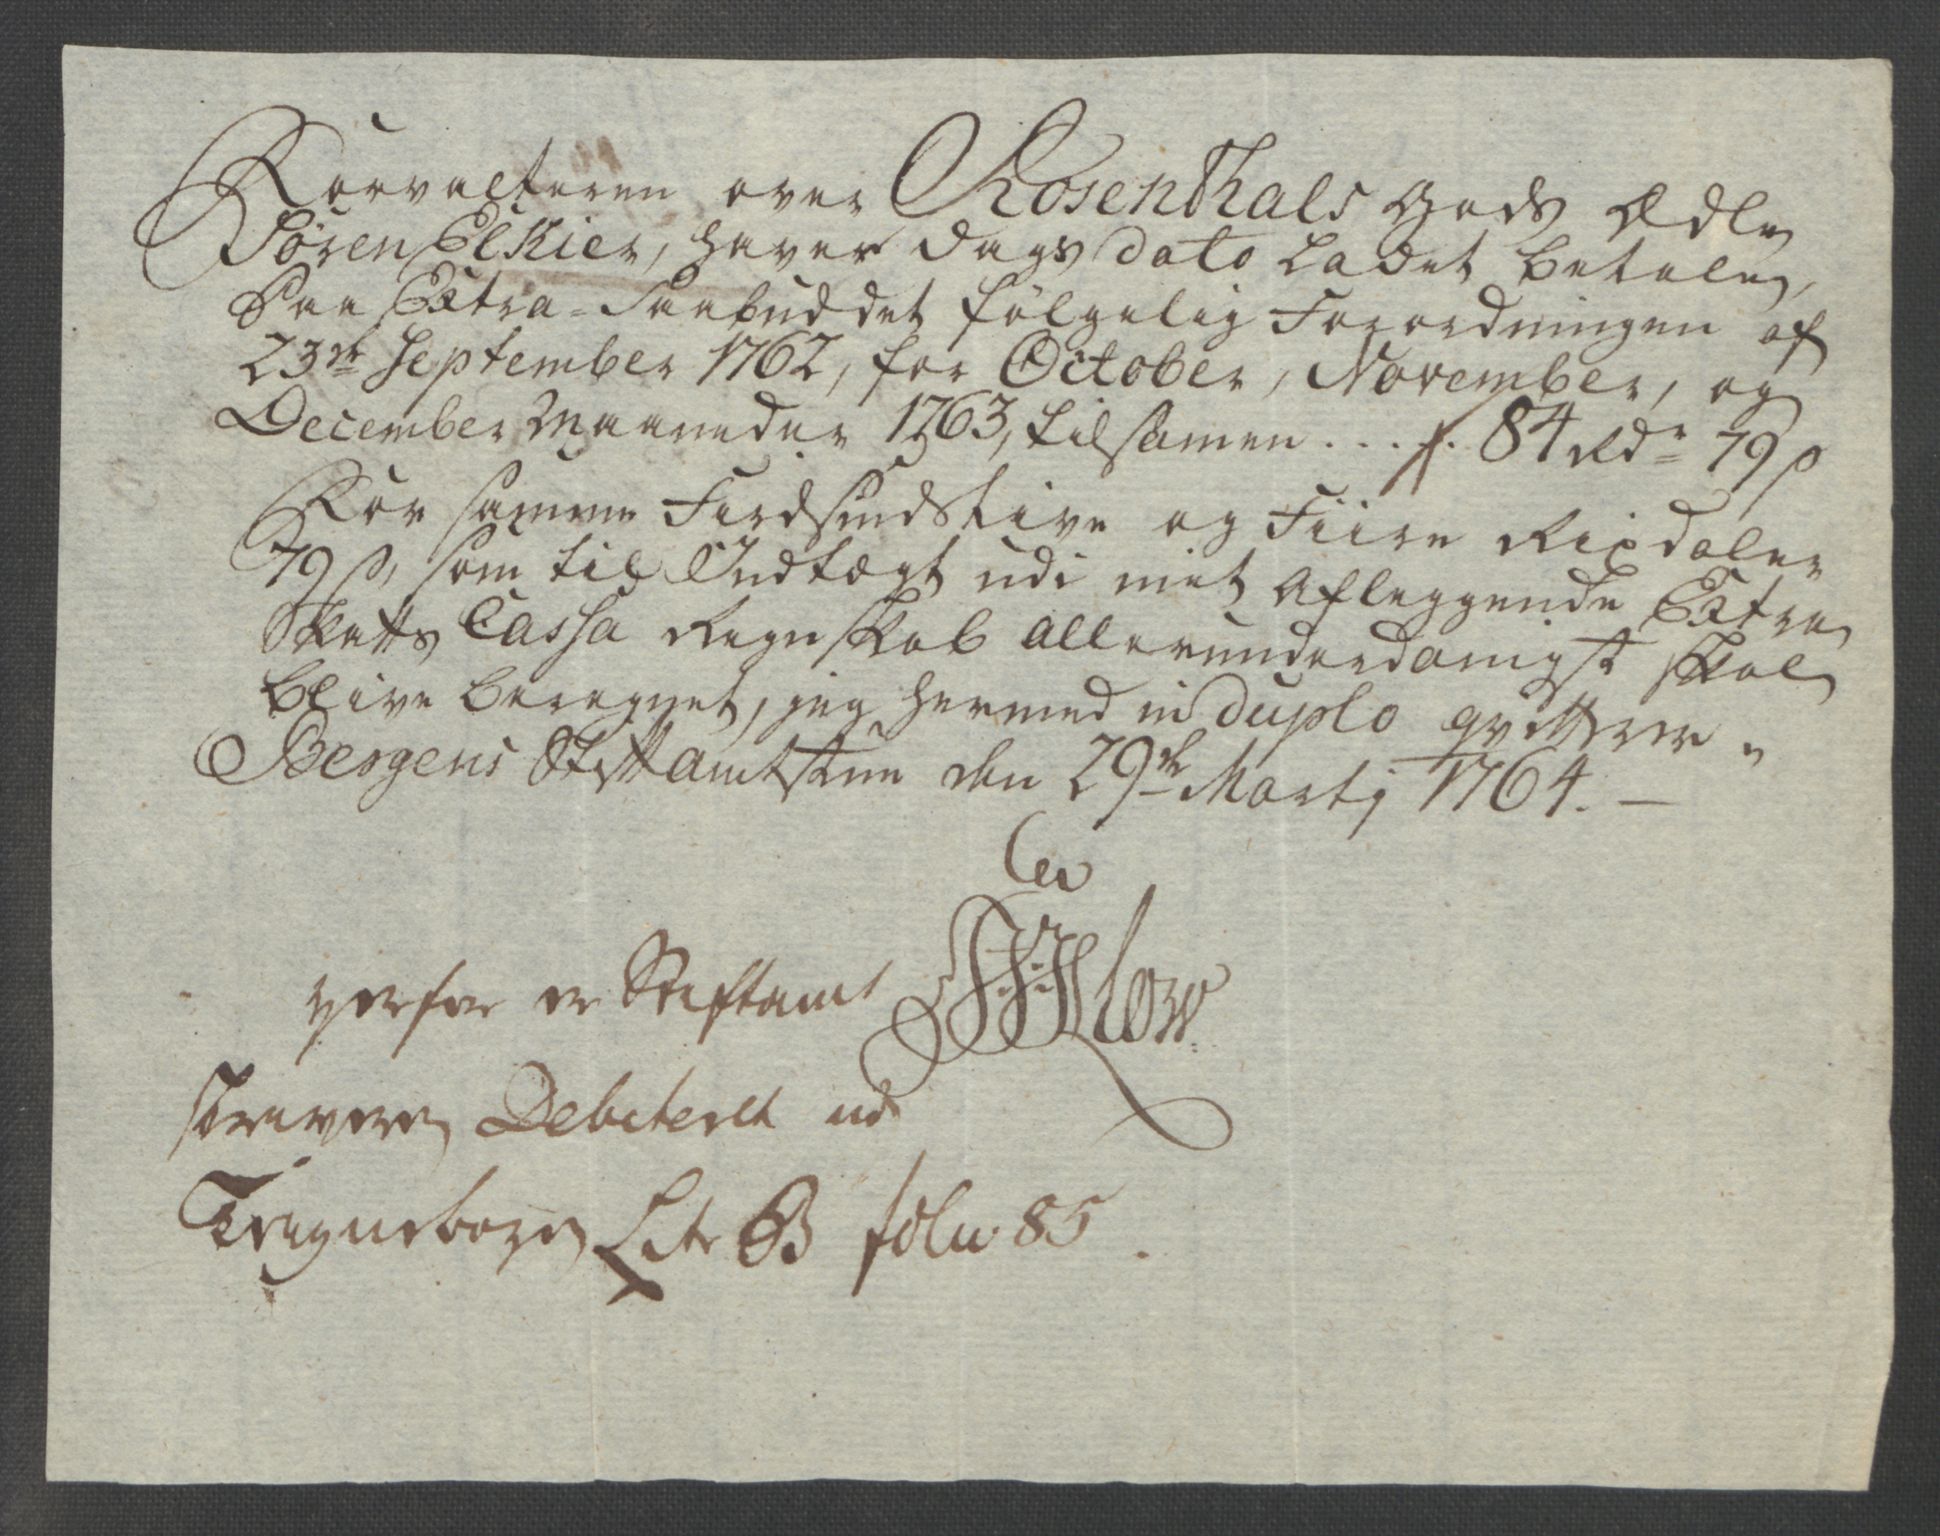 Forvalteren over Rosenthals Gods Ædle
Søren Elkier, haver dags dato Ladet betale,
Paa Extra-Paabuddet følgelig Forordningen af
23de September 1762, for October, November, og
December Maaneder 1763, tilsamen .... 84 Rdr 79 ß
For samme Firdsindstive og Fiire Rixdaler
79 ß, som til Indtægt udi mit aflæggende Extra
Skatts Cassa Regnskab allerunderdanigst skal
blive beregnet, jeg hermed in duplo qvitterer.
Bergens Stiftamtstue den 29de Martj 1764.
verfor er Stiftamt
skriveren Debiteret udi
Tegnebogen Litr B folio 85.